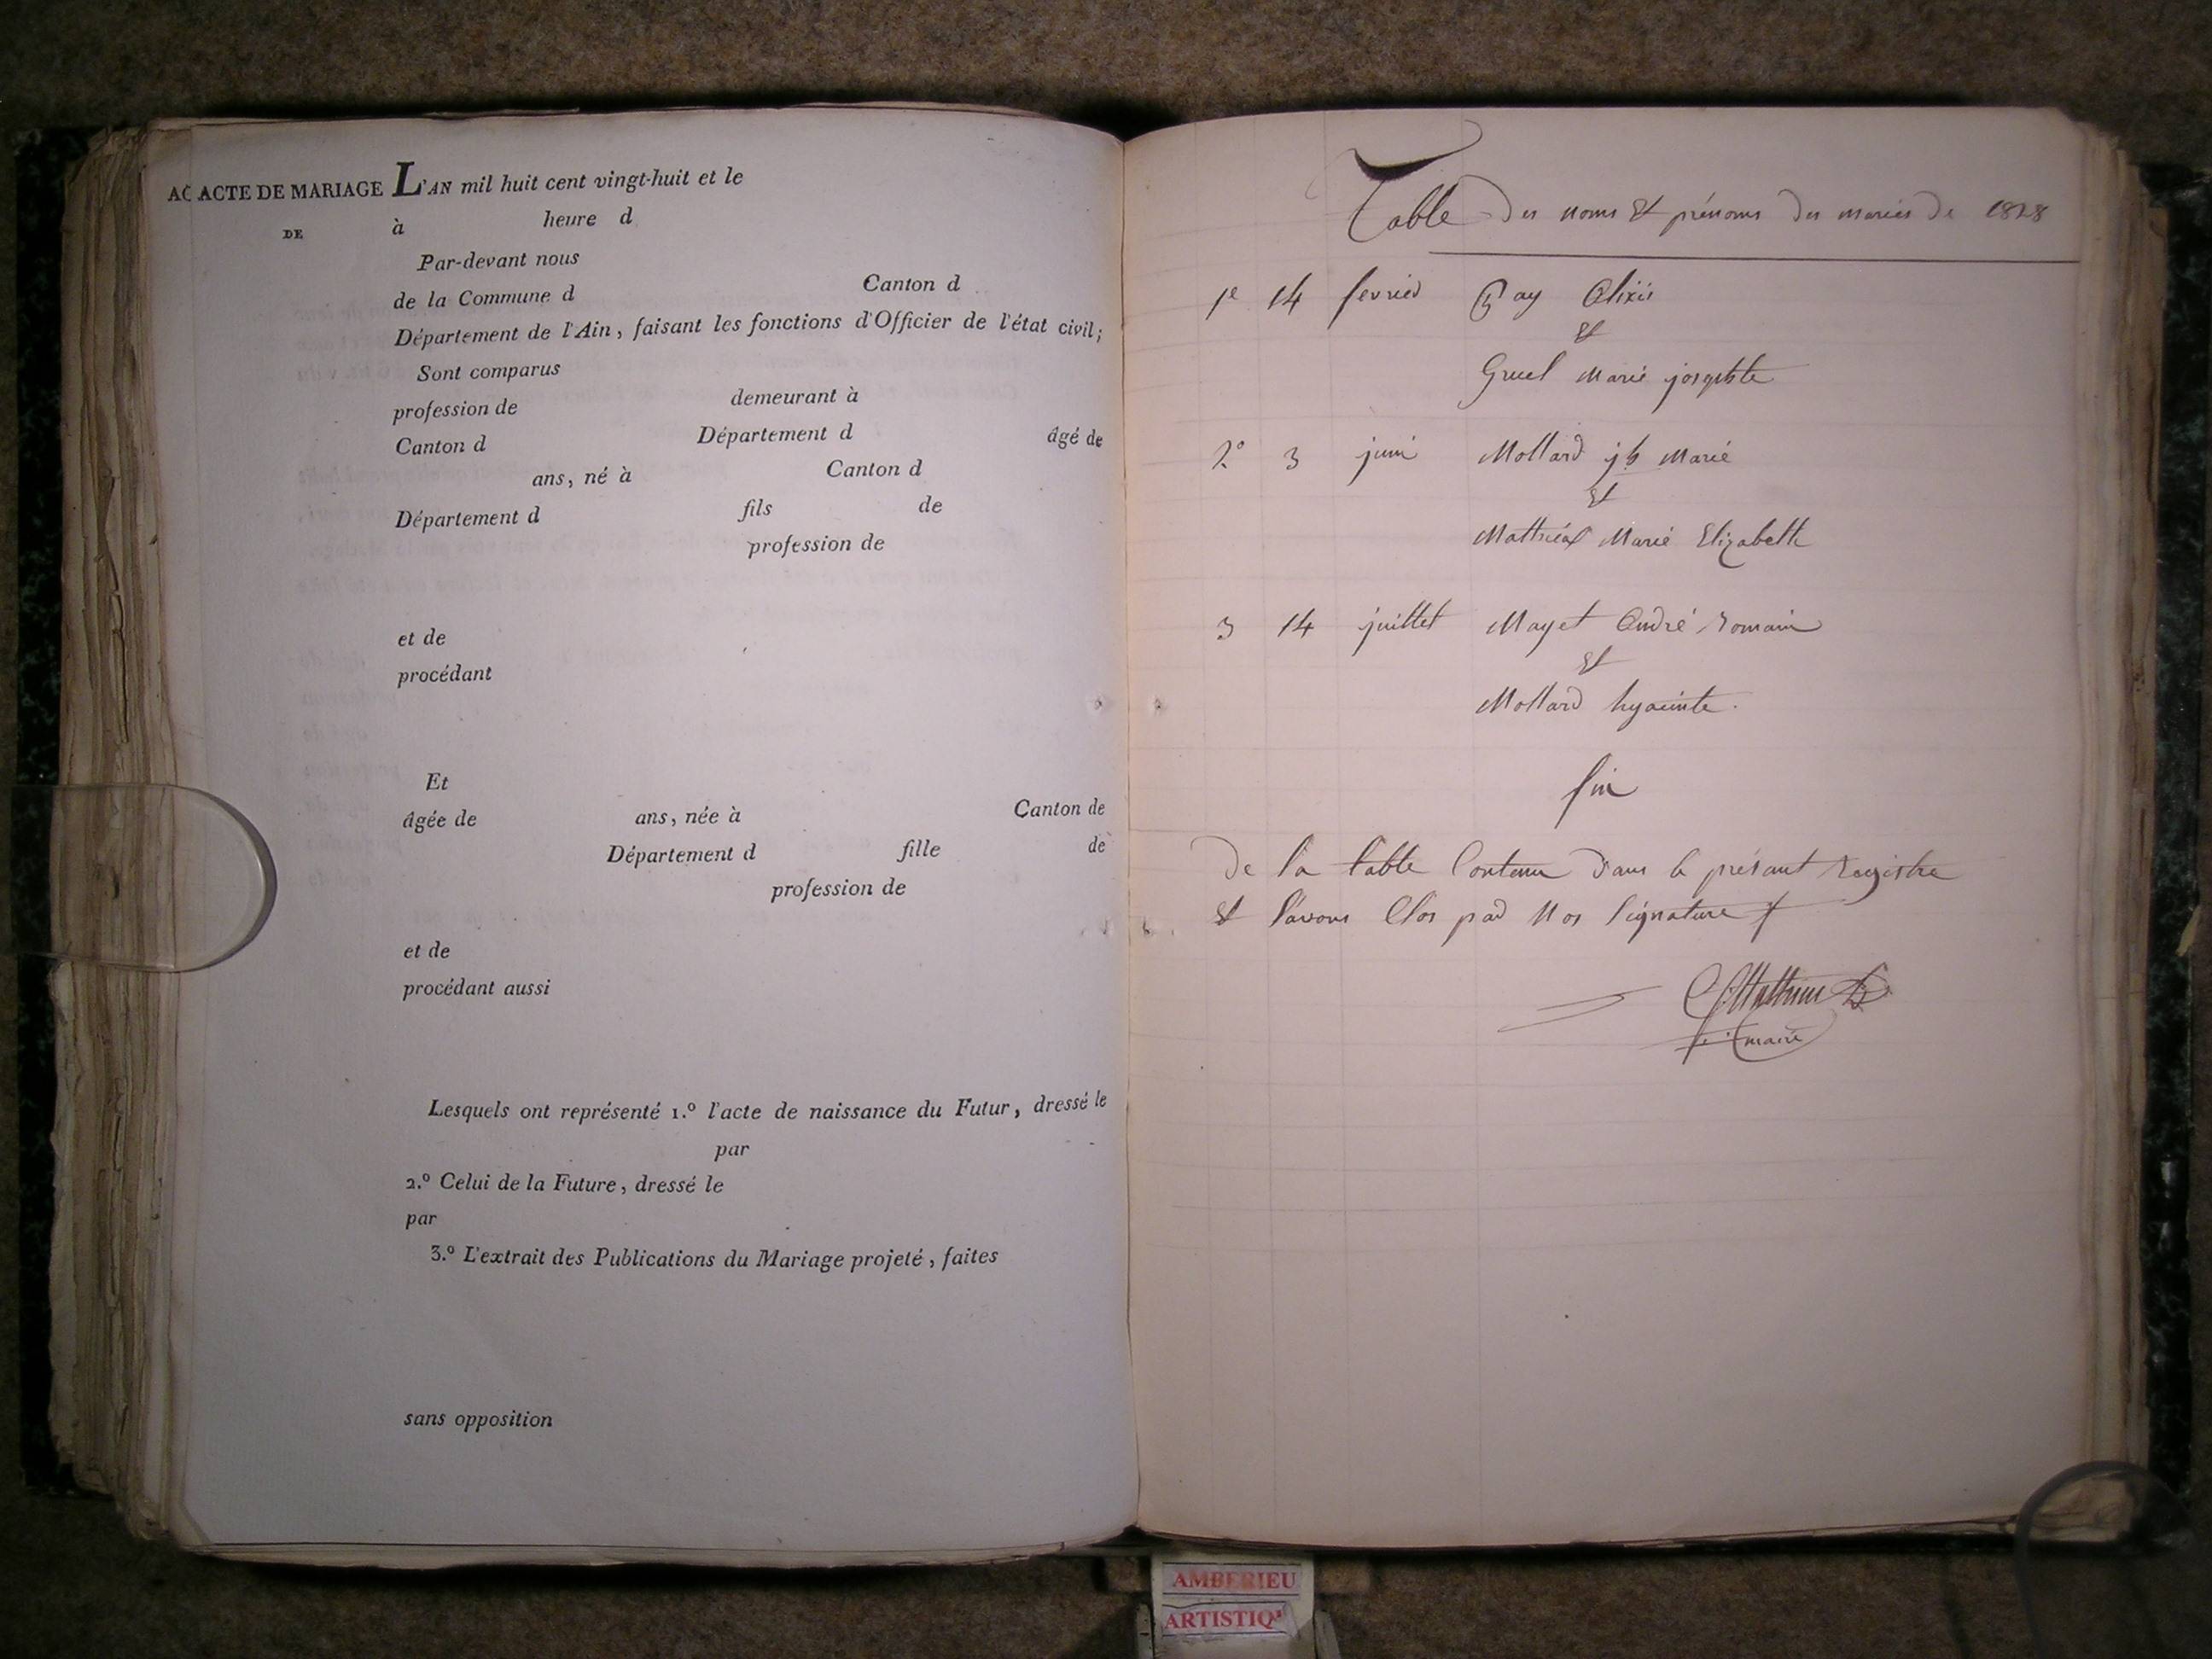 AC ACTE DE MARIAGE L'AN mil huit cent vingt-huit et le
DE à heure d
Par-devant nous
de la Commune d Canton d
Département de l'Ain, faisant les fonctions d'Officier de l'état civil;
Sont comparus
profession de demeurant à
Canton d Département d âgé de
ans, né à Canton d
Département d fils de
profession de
et de
procédant
Et
âgée de ans, née à Canton de
Département d fille de
profession de
et de
procédant aussi
Lesquels ont représenté 1.º l'acte de naissance du Futur, dressé le
par
2.º Celui de la Future, dressé le
par
3.º L'extrait des Publications du Mariage projeté, faites
sans opposition
Table des noms Et prénoms des mariés de 1828
1e 14 fevrier Gay Alixis
Et
Gruel Marie josephte
2º 3 juin Mollard jh Marie
Et
Marie Elizabeth
3 14 juillet Mayet André Romain
Et
Mollard hyacinte.
fin
De la table Contenu dans le présant Registre
Et l'avons Clos par Nos Signature
maire
AMBERIEU
ARTISTIQ